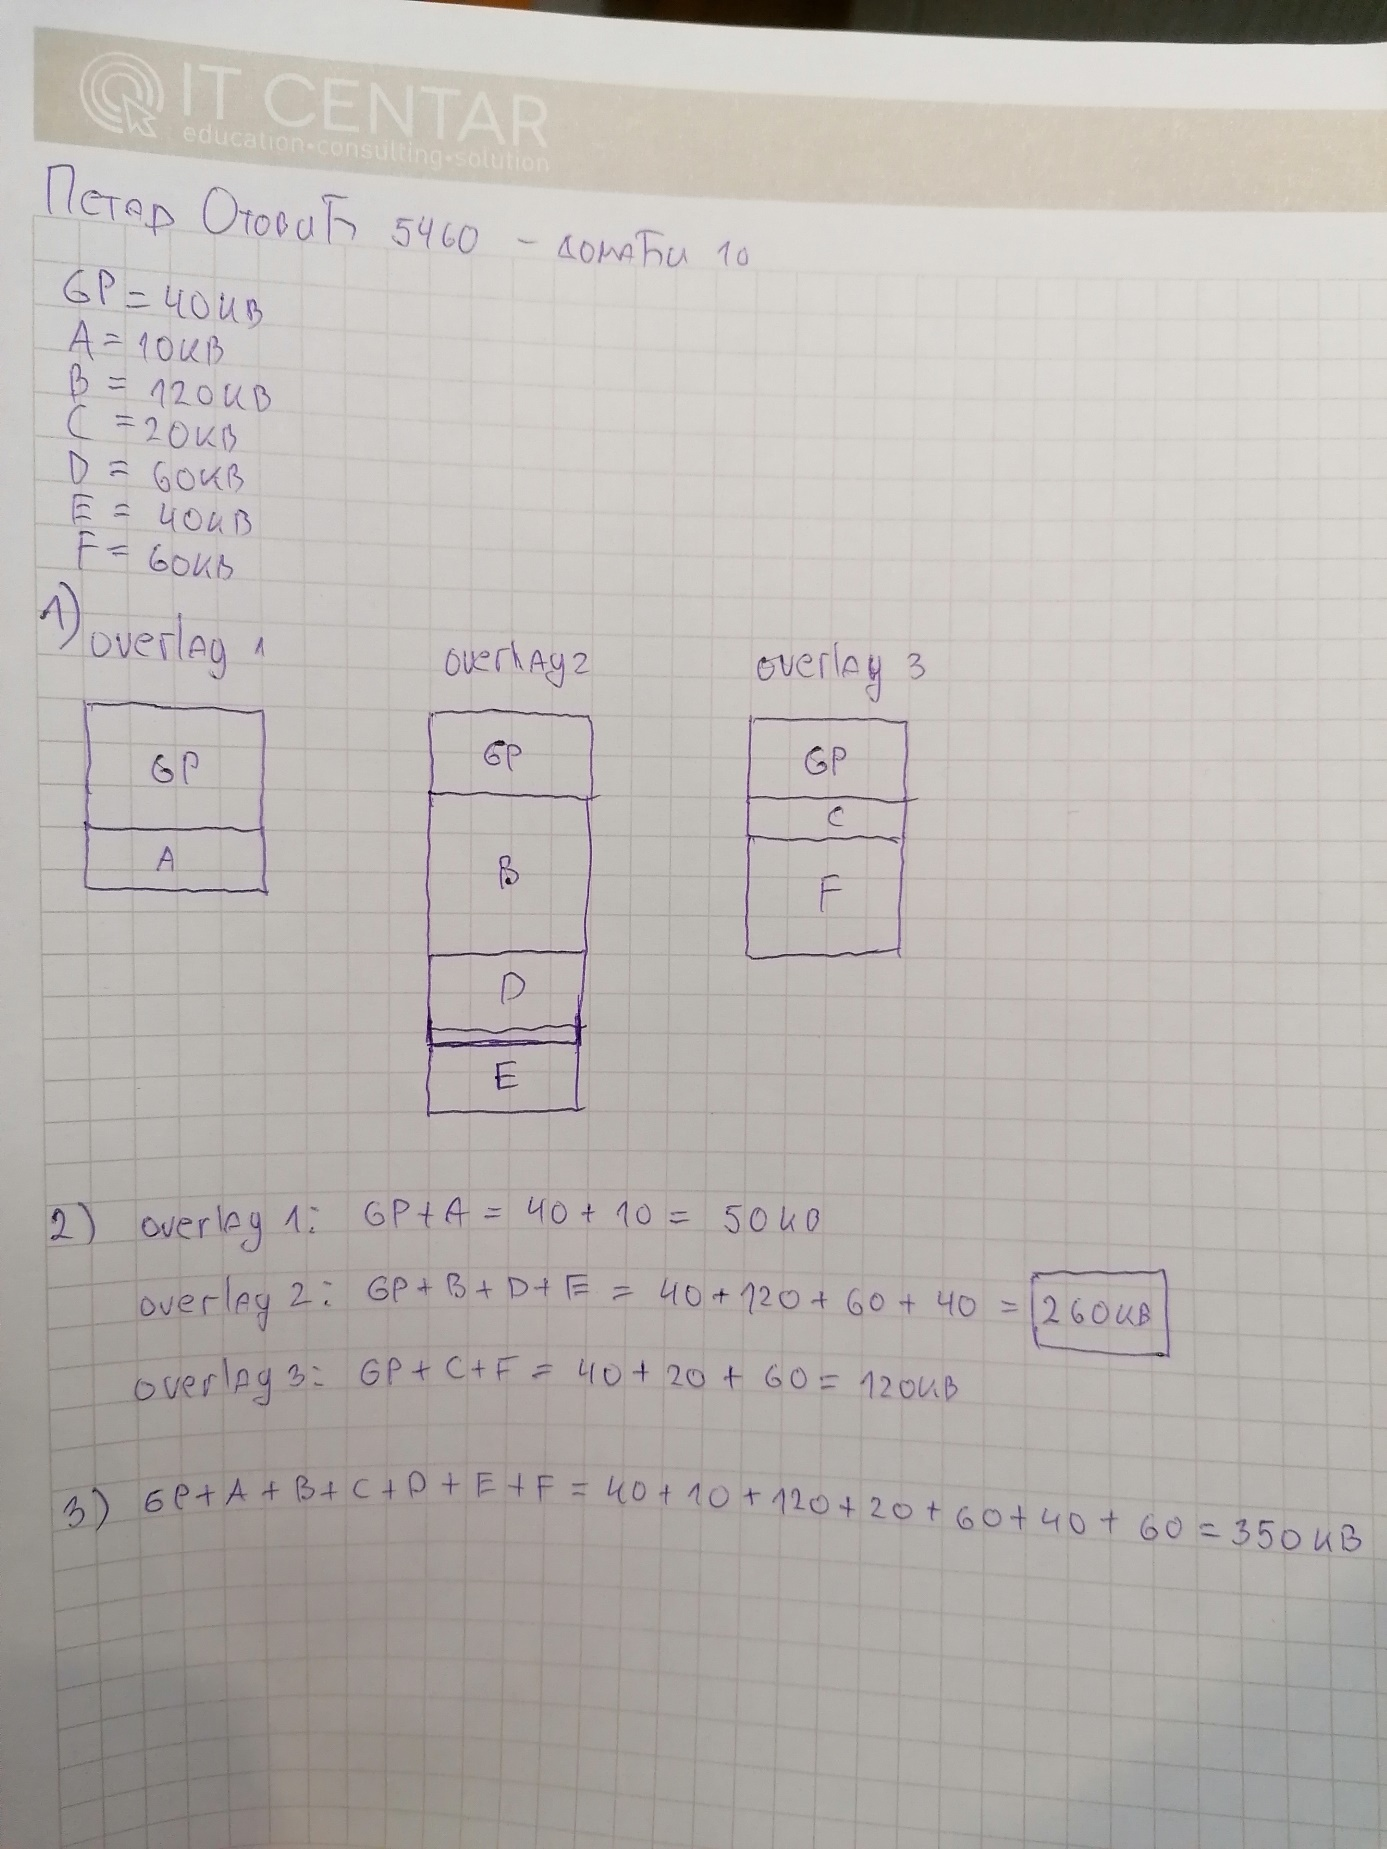 IT CENTAR
education•consulting•solution
Петар Отовић 5460 - домаћи 10
GP = 40KB
A = 10KB
B = 120KB
C = 20KB
D = 60KB
E = 40KB
F = 60KB
1) overlay 1 overlay 2 overlay 3
GP GP GP
C
A B F
D
E
2) overlay 1: GP+A = 40 + 10 = 50KB
overlay 2: GP+B+D+E = 40+120+60+40 = 260KB
overlay 3: GP+C+F = 40+20+60 = 120KB
3) GP+A+B+C+D+E+F = 40+10+120+20+60+40+60 = 350KB